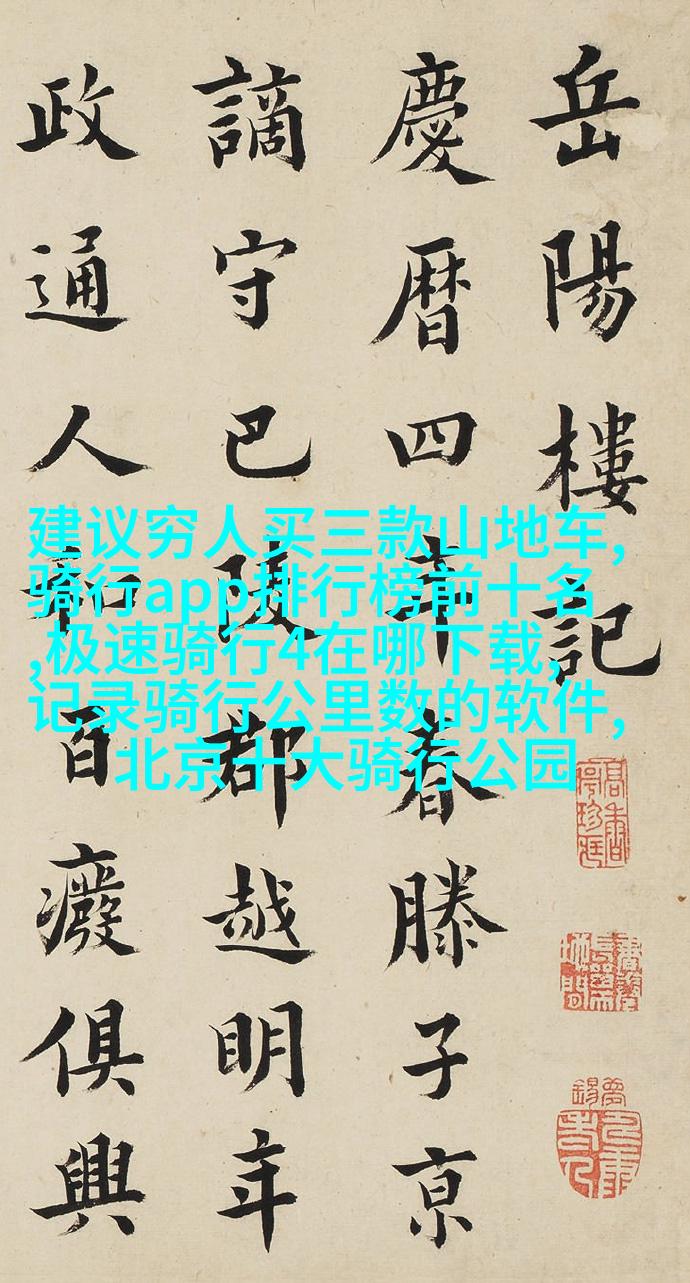 岳陽樓記
慶曆四年春滕子京
謫守巴陵郡越明年
政通人和百癈俱興
建议穷人买三款山地车,
骑行app排行榜前十名
,极速骑行4在哪下载,
记录骑行公里数的软件,
北京十大骑行公园